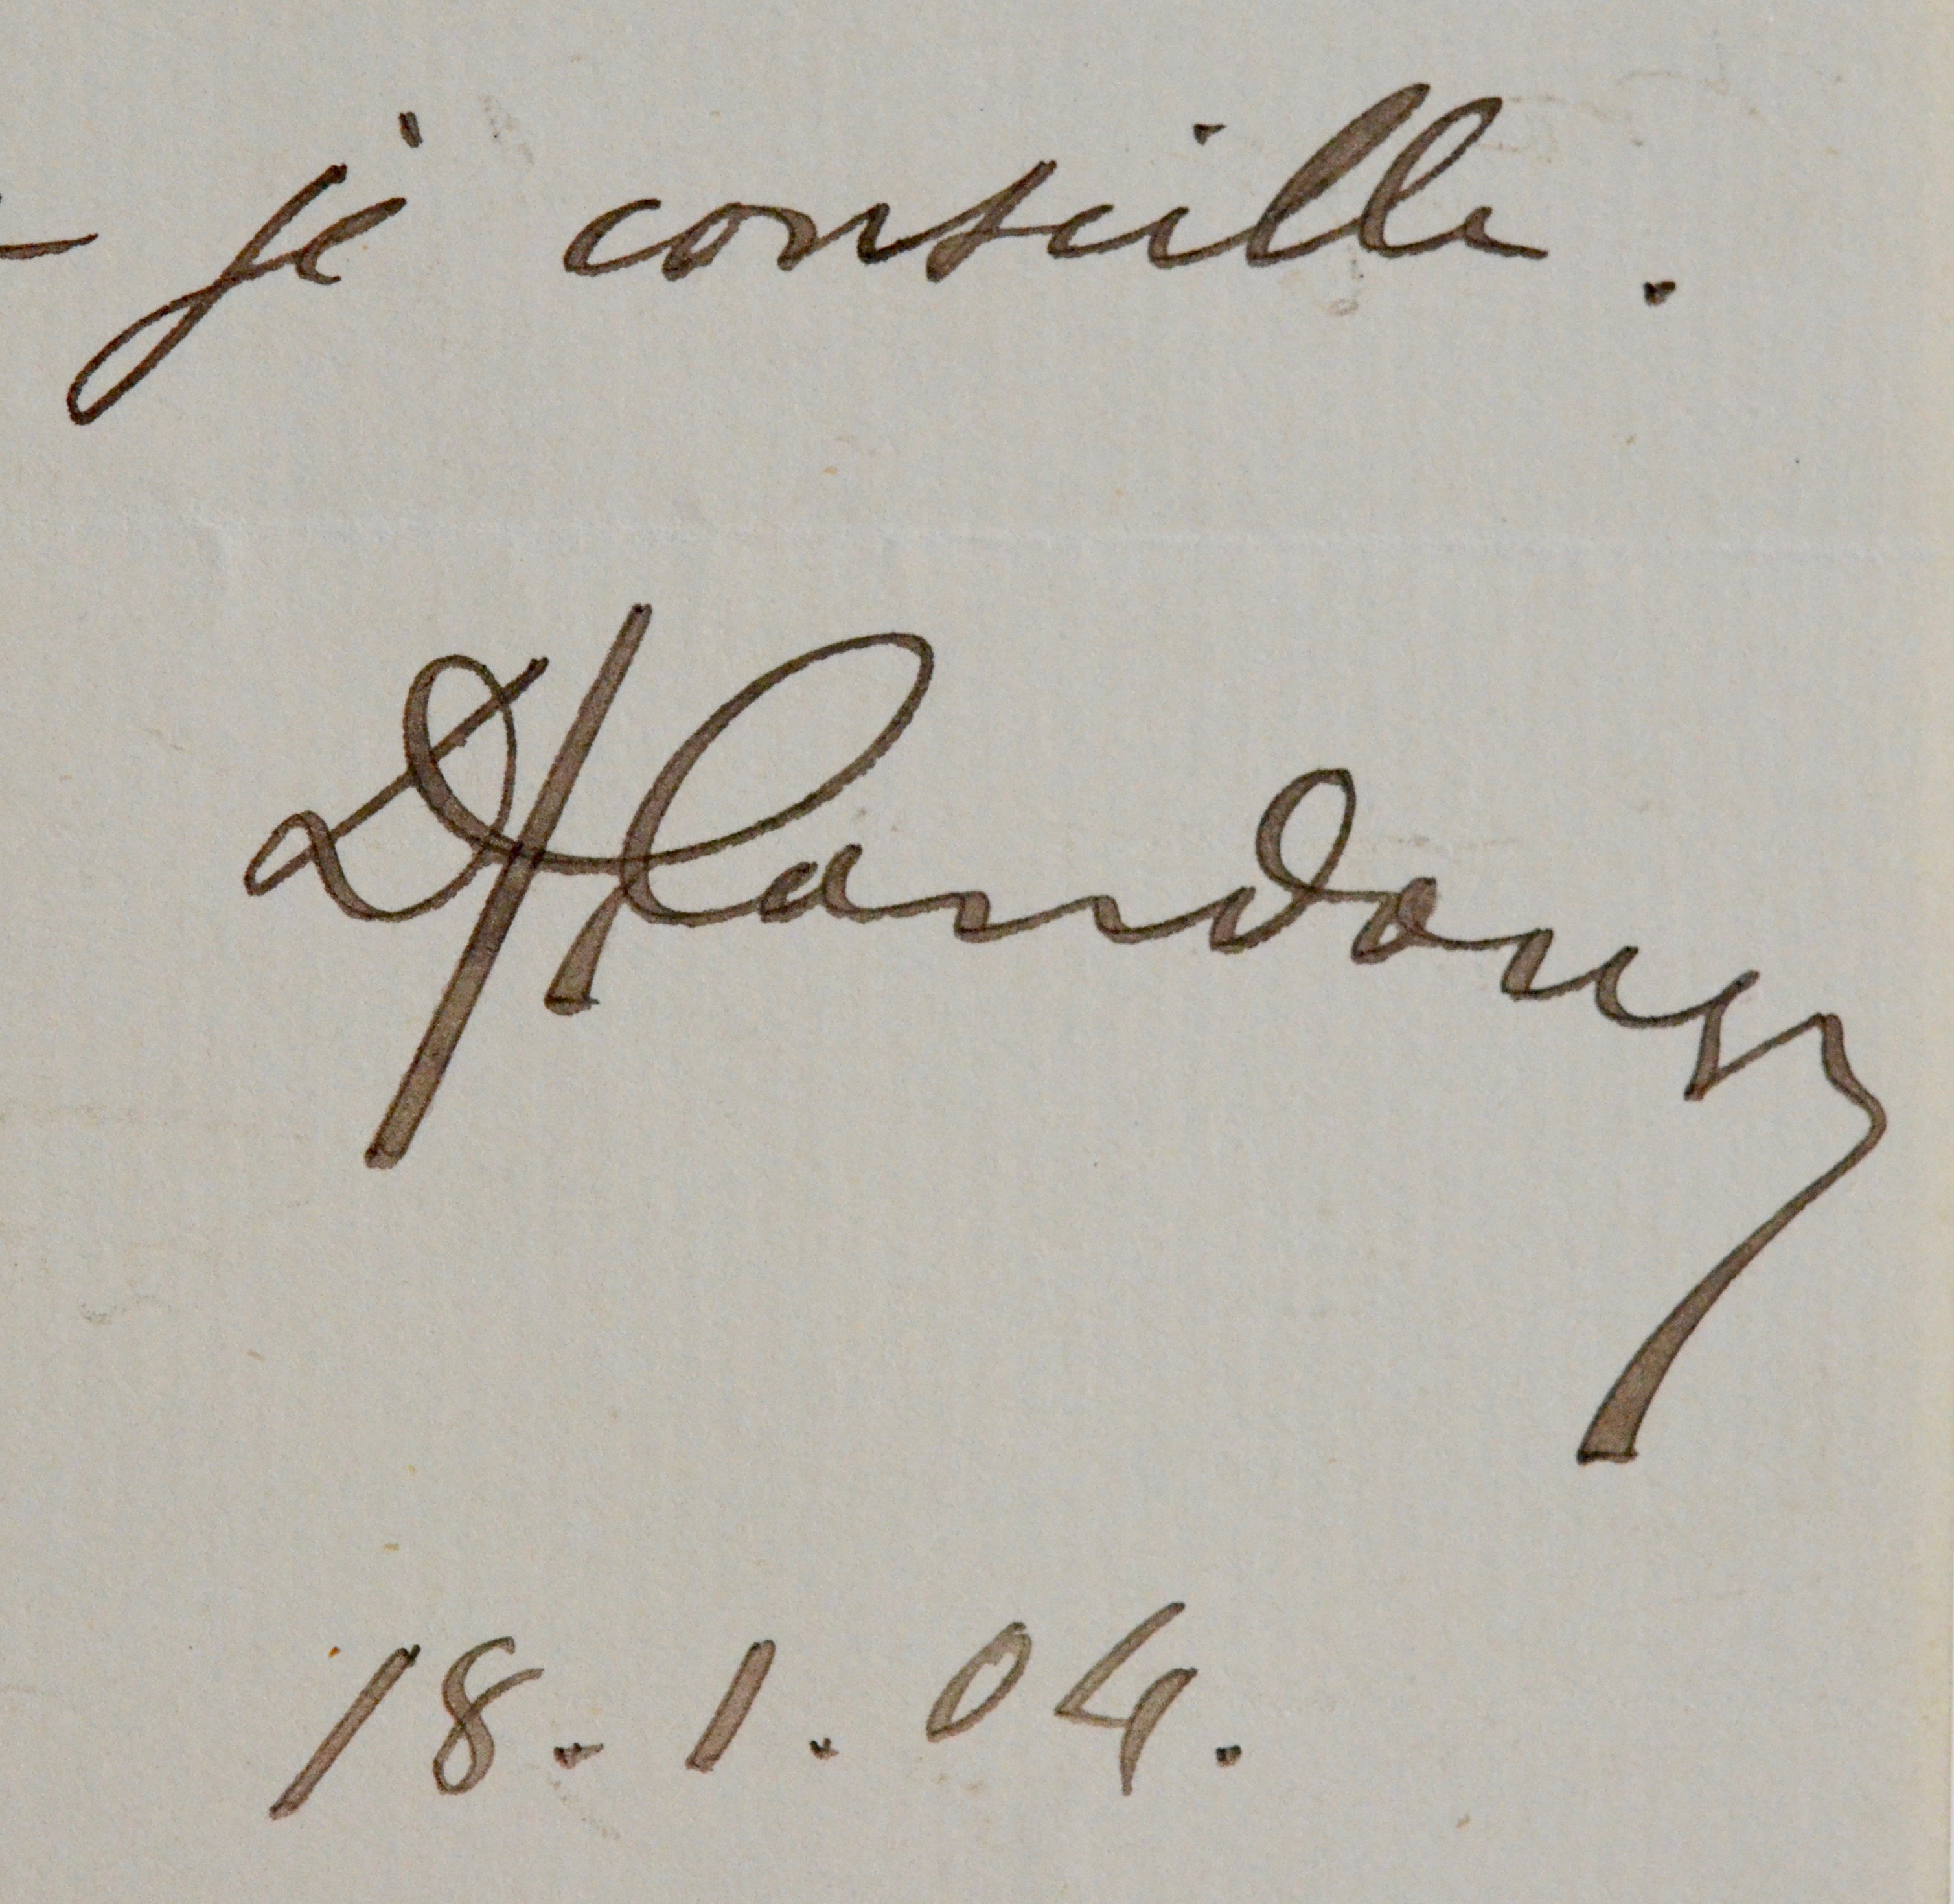 je conseille.
Landouzy
18.1.04.